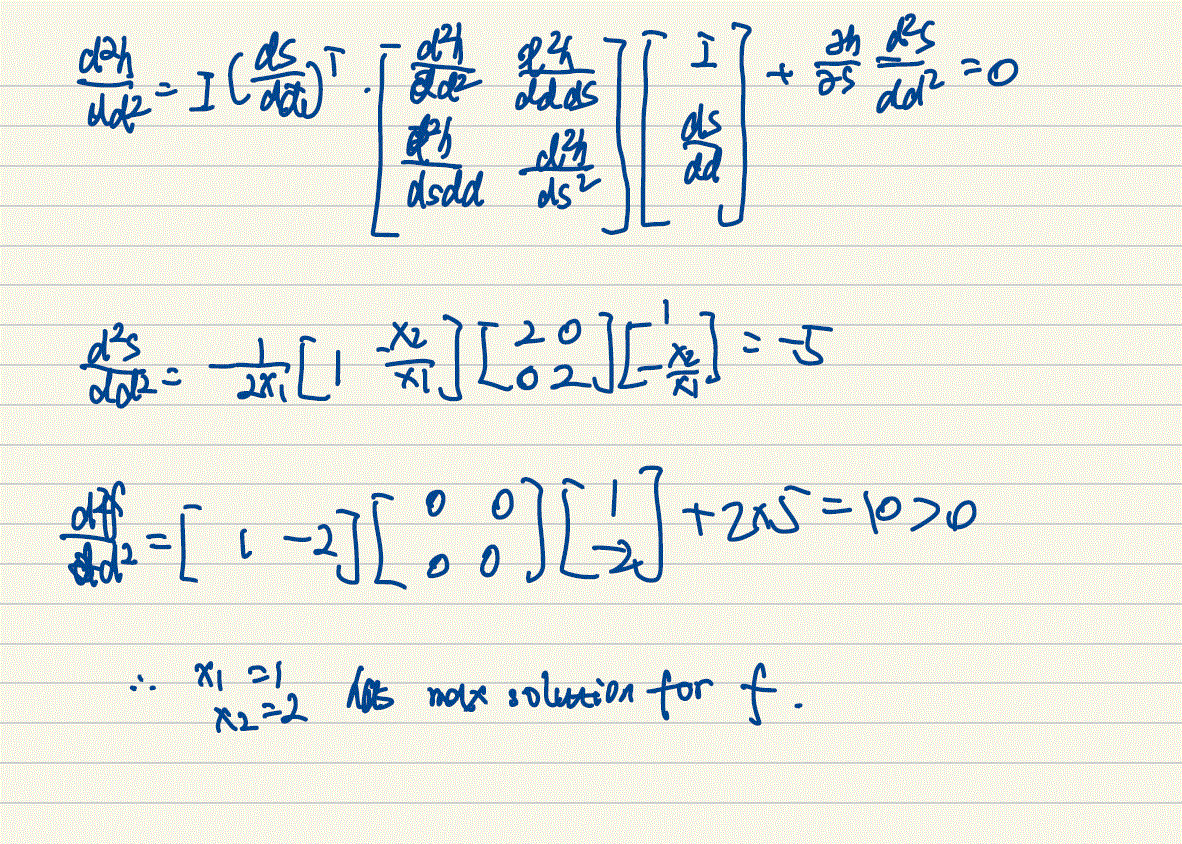 d²h/dd² = I (ds/dd)ᵀ · [d²h/dd² d²h/ddds; d²h/dsdd d²h/ds²] [I; ds/dd] + ∂h/∂s d²s/dd² = 0
d²s/dd² = -1/2x₁ [1 -x₂/x₁] [2 0; 0 2] [1; -x₂/x₁] = -5
d²f/dd² = [1 -2] [0 0; 0 0] [1; -2] + 2x5 = 10 > 0
∴ x₁ = 1
x₂ = 2 max solution for f.